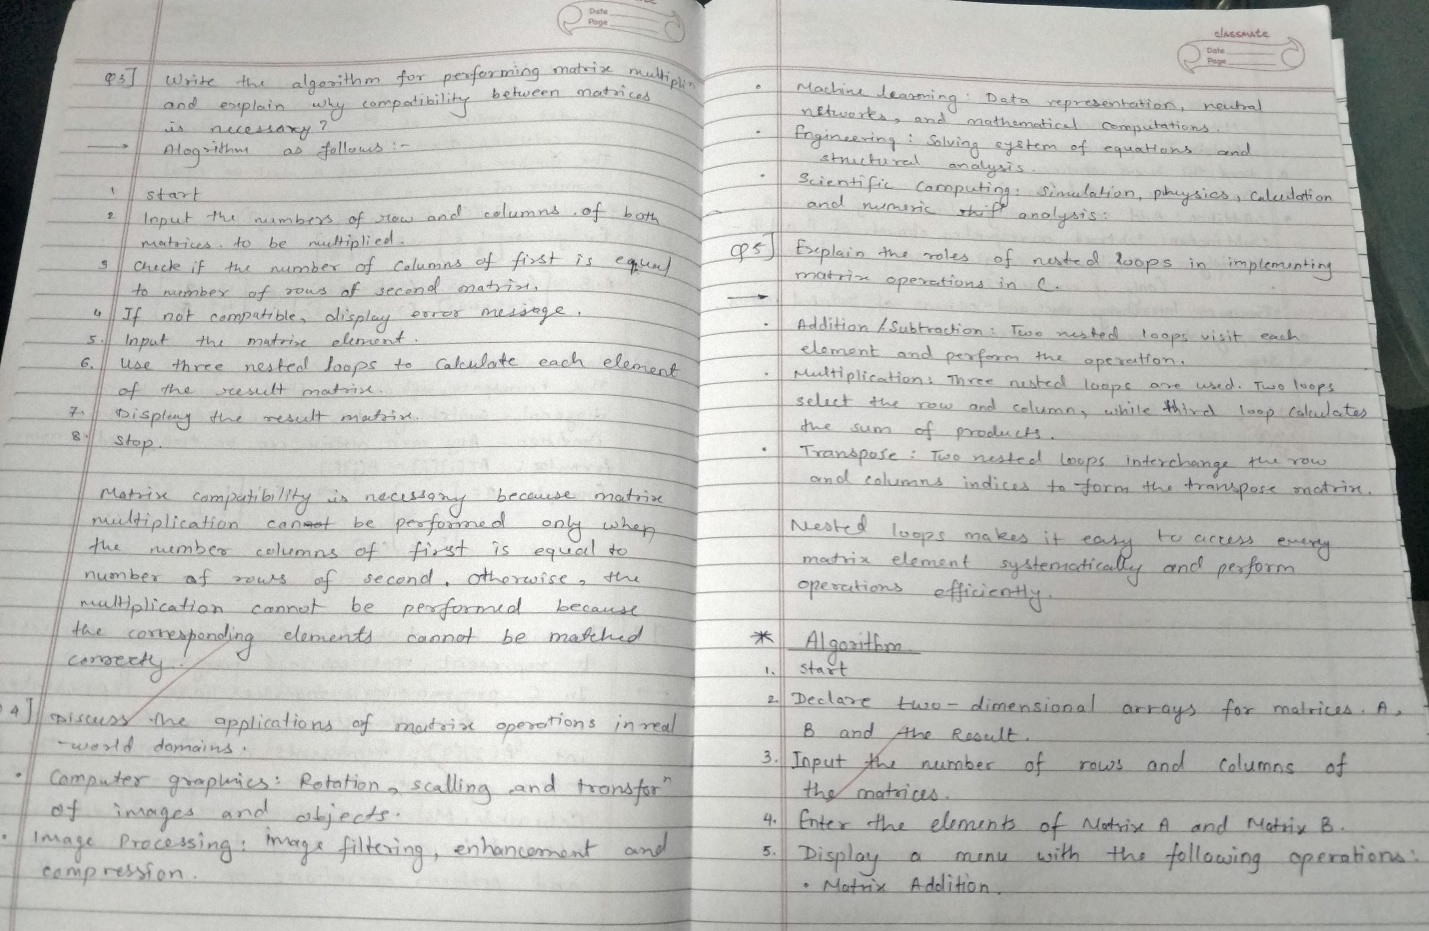 Date
Page
Q3] Write the algorithm for performing matrix multiplin
and explain why compatibility between matrices
is necessary?
→ Alogrithm as follows :-
1 start
2 Input the numbers of row and columns of both
matrices. to be multiplied.
3 check if the number of columns of first is equal
to number of rows of second matrix.
4 If not compatible, display error message.
5. Input the matrix element.
6. Use three nested loops to calculate each element
of the result matrix.
7. Display the result matrix.
8. Stop.
Matrix compatibility is necessary because matrix
multiplication can be performed only when
the number columns of first is equal to
number of rows of second. Otherwise, the
multiplication cannot be performed because
the corresponding elements cannot be matched
correctly.
4] Discuss the applications of matrix operations in real
-world domains.
• Computer graphics: Rotation, scalling and transforⁿ
of images and objects.
• Image Processing: image filtering, enhancement and
compression.
classmate
Date
Page
• Machine learning: Data representation, neutral
networks, and mathematical computations.
• Engineering: Solving system of equations and
structural analysis.
• Scientific Computing: Simulation, physics, calculation
and numeric analysis:
Q5] Explain the roles of nested loops in implementing
matrix operations in C.
→
• Addition/Subtraction: Two nested loops visit each
element and perform the operation.
• Multiplication: Three nested loops are used. Two loops
select the row and column, while third loop calculates
the sum of products.
• Transpose: Two nested loops interchange the row
and columns indices to form the transpose matrix.
Nested loops makes it easy to access every
matrix element systematically and perform
operations efficiently.
* Algorithm
1. Start
2. Declare two-dimensional arrays for matrices. A,
B and the Result.
3. Input the number of rows and columns of
the matrices.
4. Enter the elements of Matrix A and Matrix B.
5. Display a menu with the following operations:
• Matrix Addition.